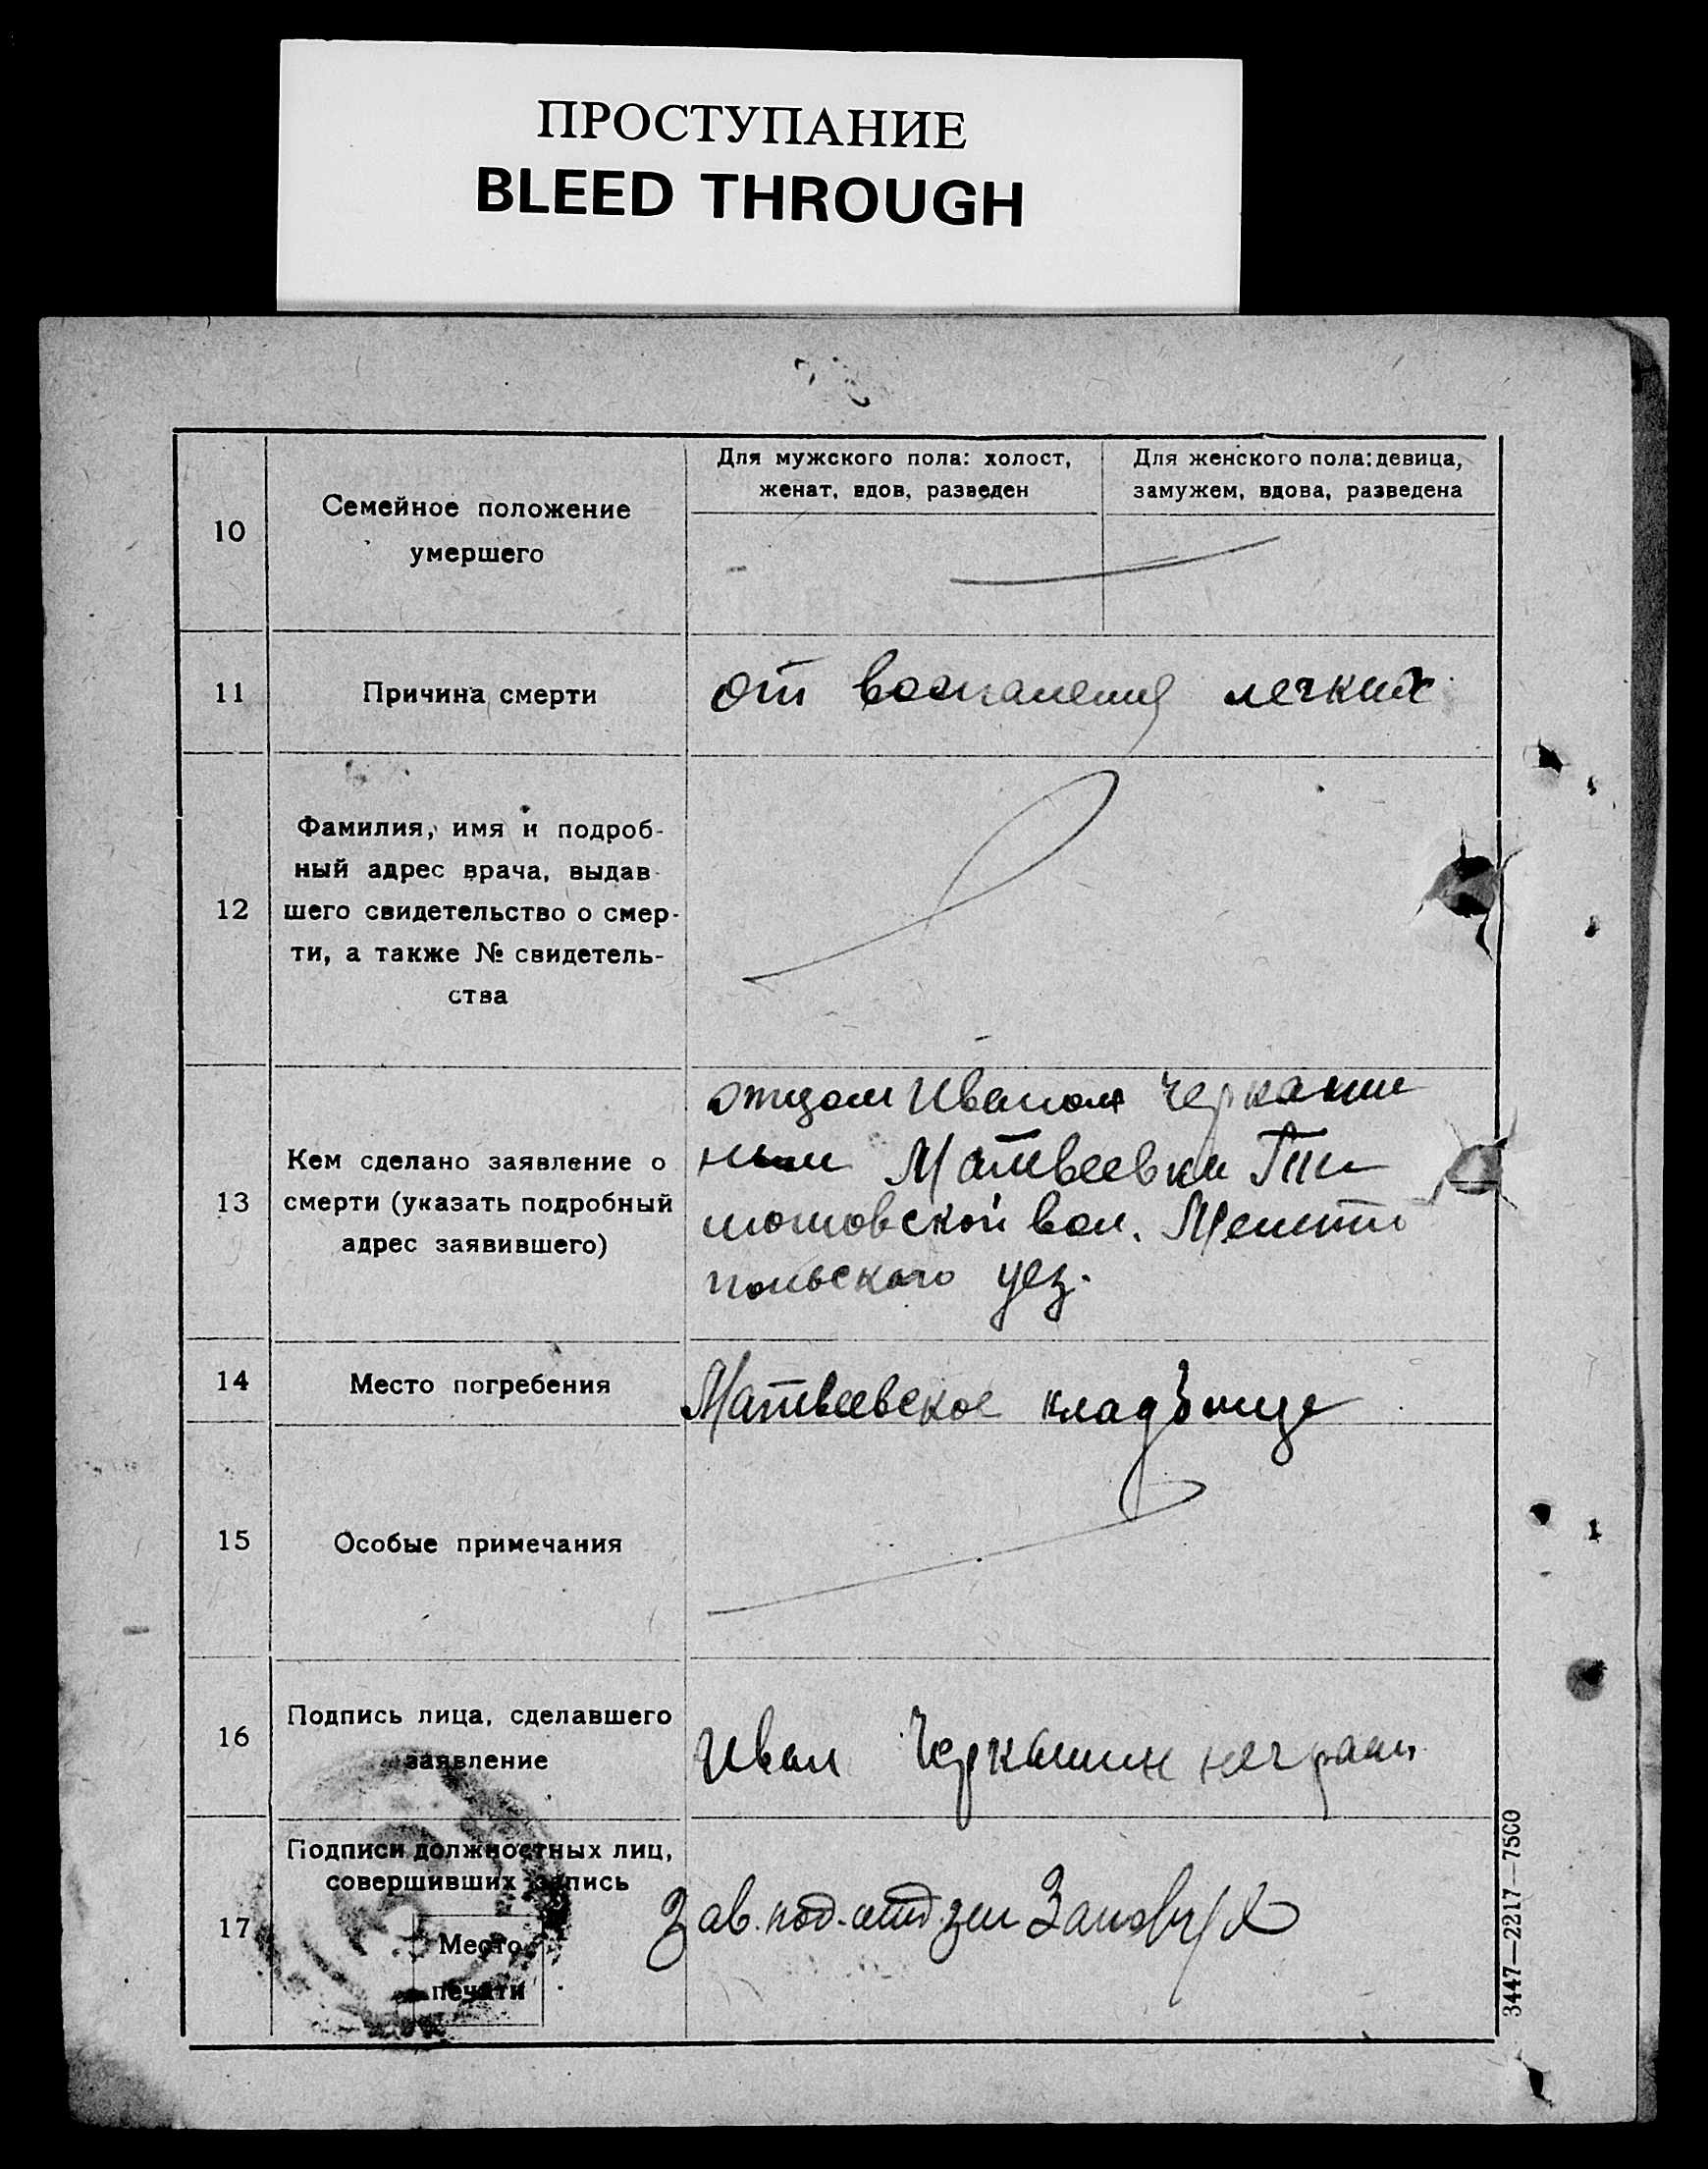 ПРОСТУПАНИЕ
BLEED THROUGH
10
Семейное положение
умершего
Для мужского пола: холост,
женат, вдов, разведен
Для женского пола: девица,
замужем, вдова, разведена
11
Причина смерти
от воспаления легких
12
Фамилия, имя и подроб-
ный адрес врача, выдав-
шего свидетельство о смер-
ти, а также № свидетель-
ства
13
Кем сделано заявление о
смерти (указать подробный
адрес заявившего)
отцом Иваном Черкаши
ным Матвеевки Ти
мошовской вол. Мелито
польского уез.
14
Место погребения
Матвеевское кладбище
15
Особые примечания
16
Подпись лица, сделавшего
заявление
Иван Черкашин неграм.
17
Подписи должностных лиц,
совершивших запись
Место
печати
Зав. под. отд.
3447—2217—7500